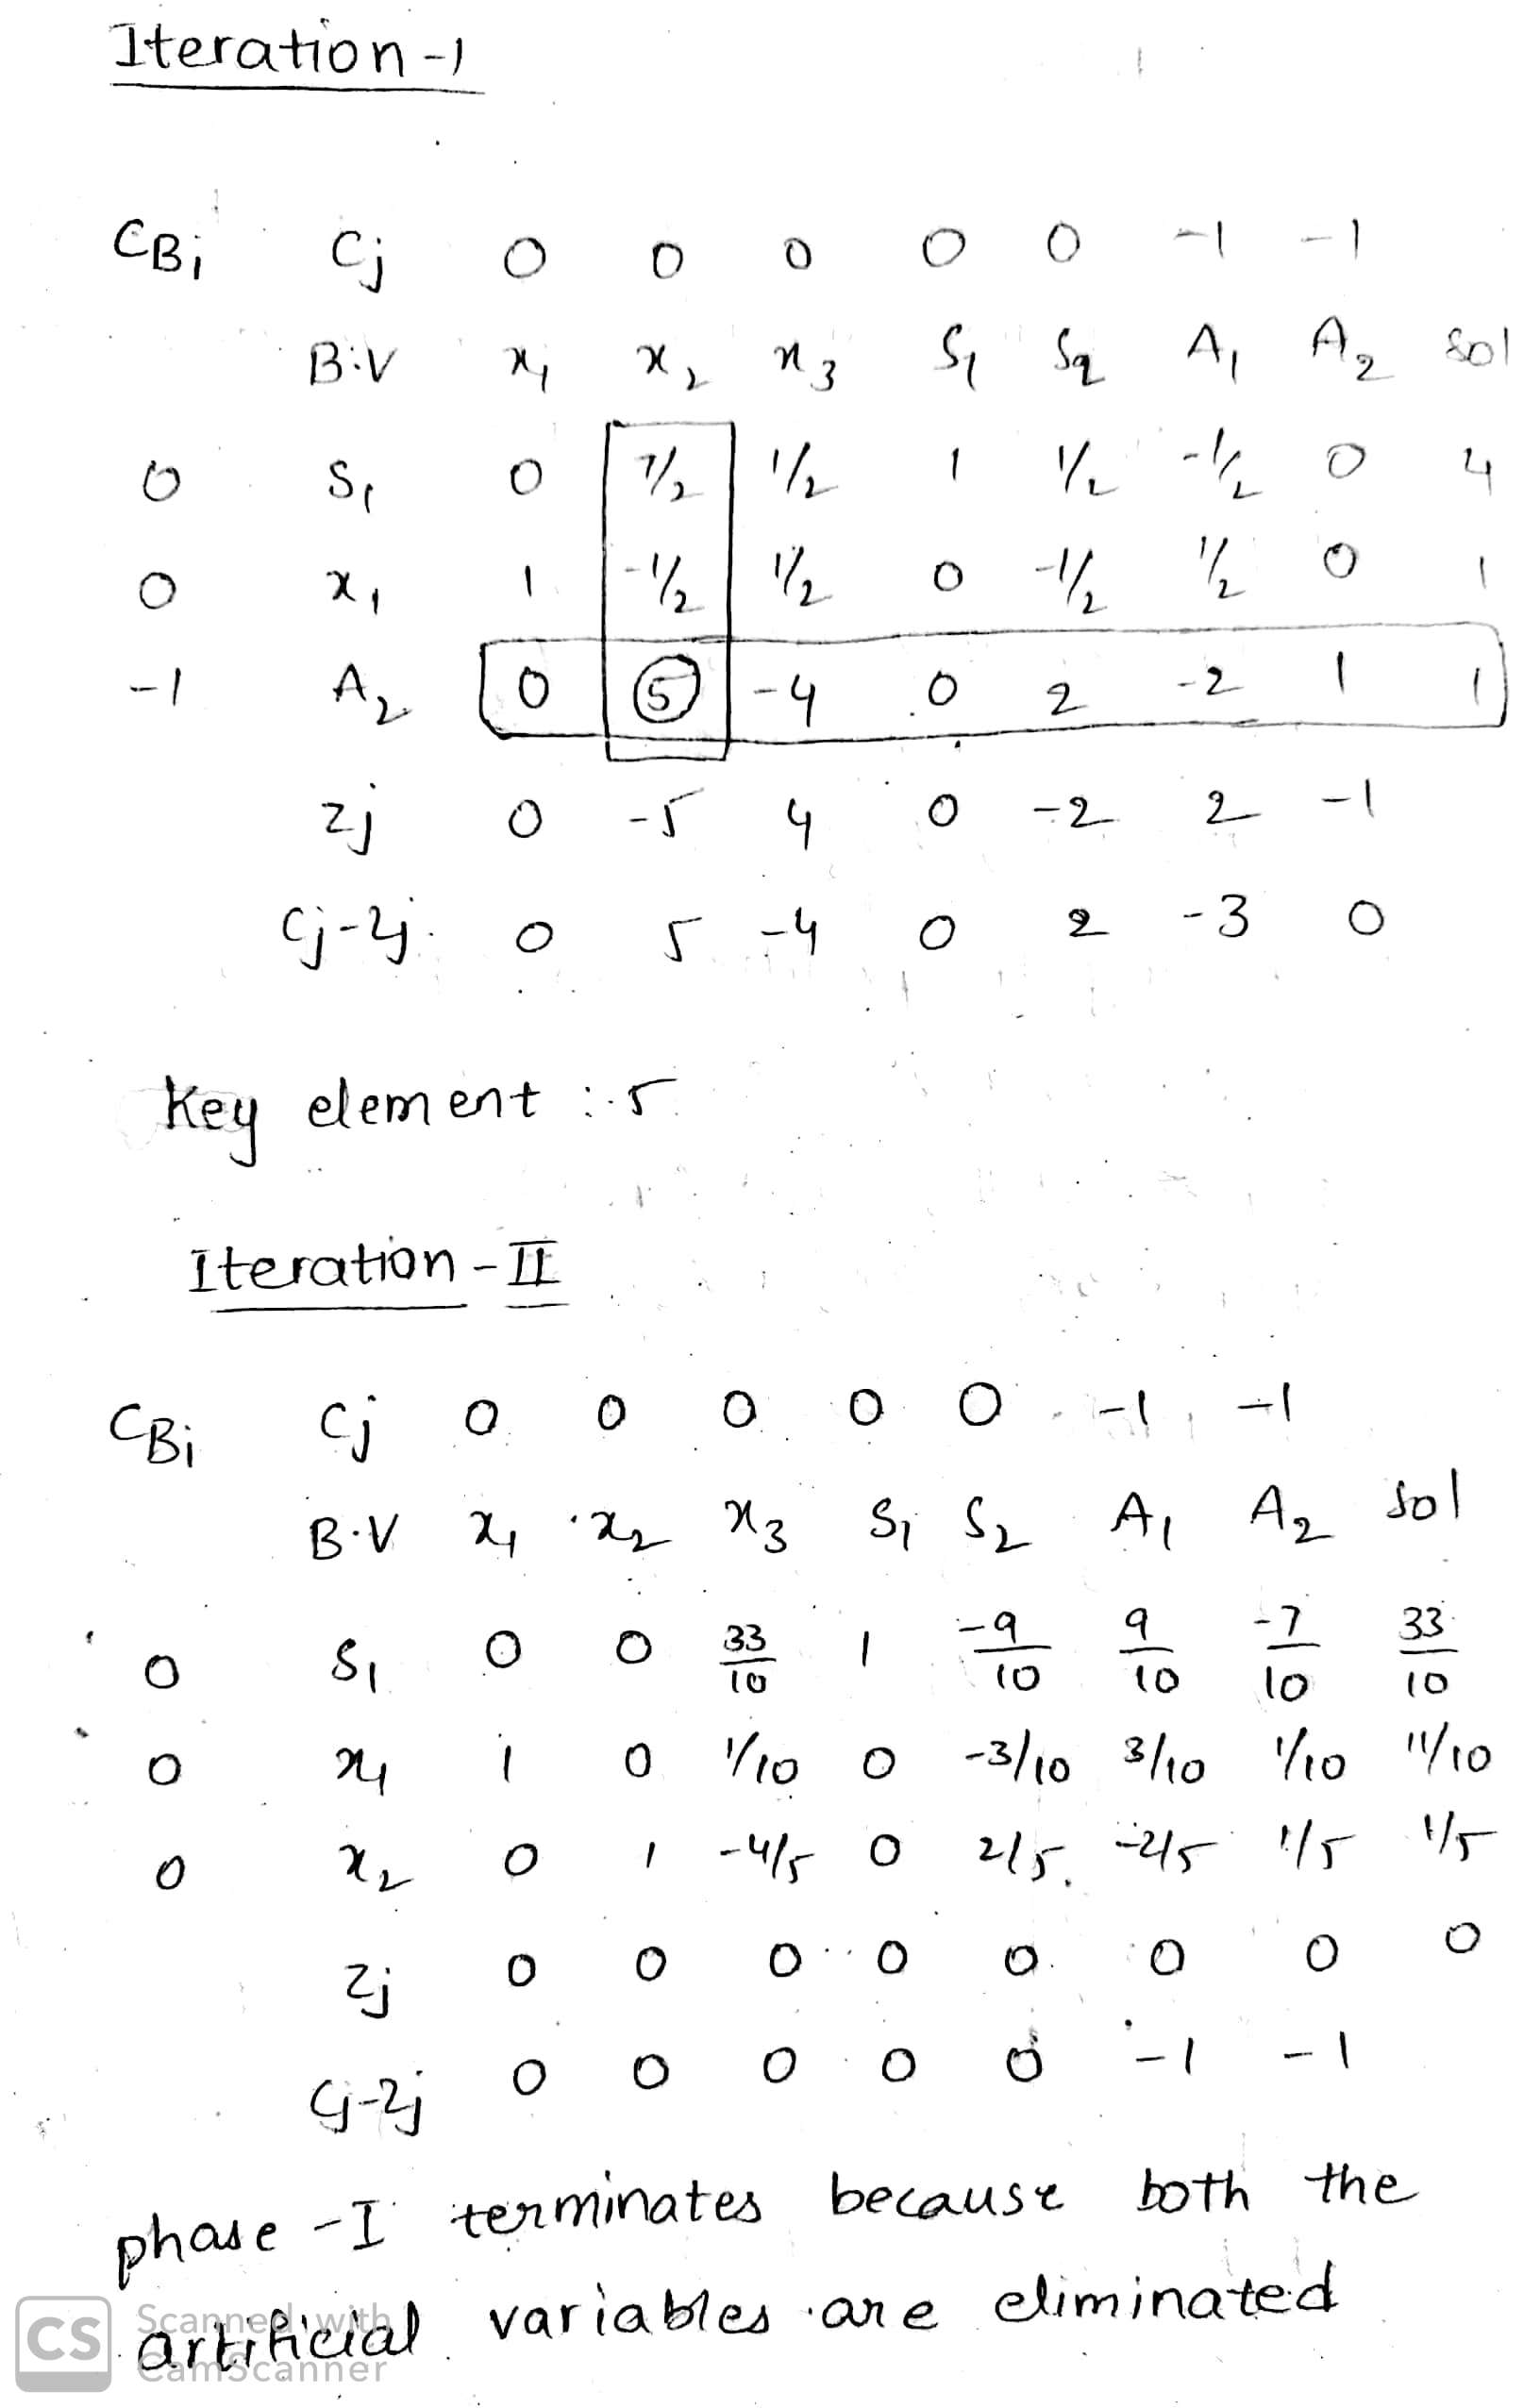 Iteration-1
CBi Cj 0 0 0 0 0 -1 -1
B.V x1 x2 x3 S1 S2 A1 A2 Sol
0 S1 0 7/2 1/2 1 1/2 -1/2 0 4
0 x1 1 -1/2 1/2 0 -1/2 1/2 0 1
-1 A2 0 5 -4 0 2 -2 1 1
Zj 0 -5 4 0 -2 2 -1
Cj-Zj 0 5 -4 0 2 -3 0
Key element : 5
Iteration-II
CBi Cj 0 0 0 0 0 -1 -1
B.V x1 x2 x3 S1 S2 A1 A2 Sol
0 S1 0 0 33/10 1 -9/10 9/10 -7/10 33/10
0 x1 1 0 1/10 0 -3/10 3/10 1/10 11/10
0 x2 0 1 -4/5 0 2/5 -2/5 1/5 1/5
Zj 0 0 0 0 0 0 0 0
Cj-Zj 0 0 0 0 0 -1 -1
phase-I terminates because both the
artificial variables are eliminated
CS Scanned with
CamScanner